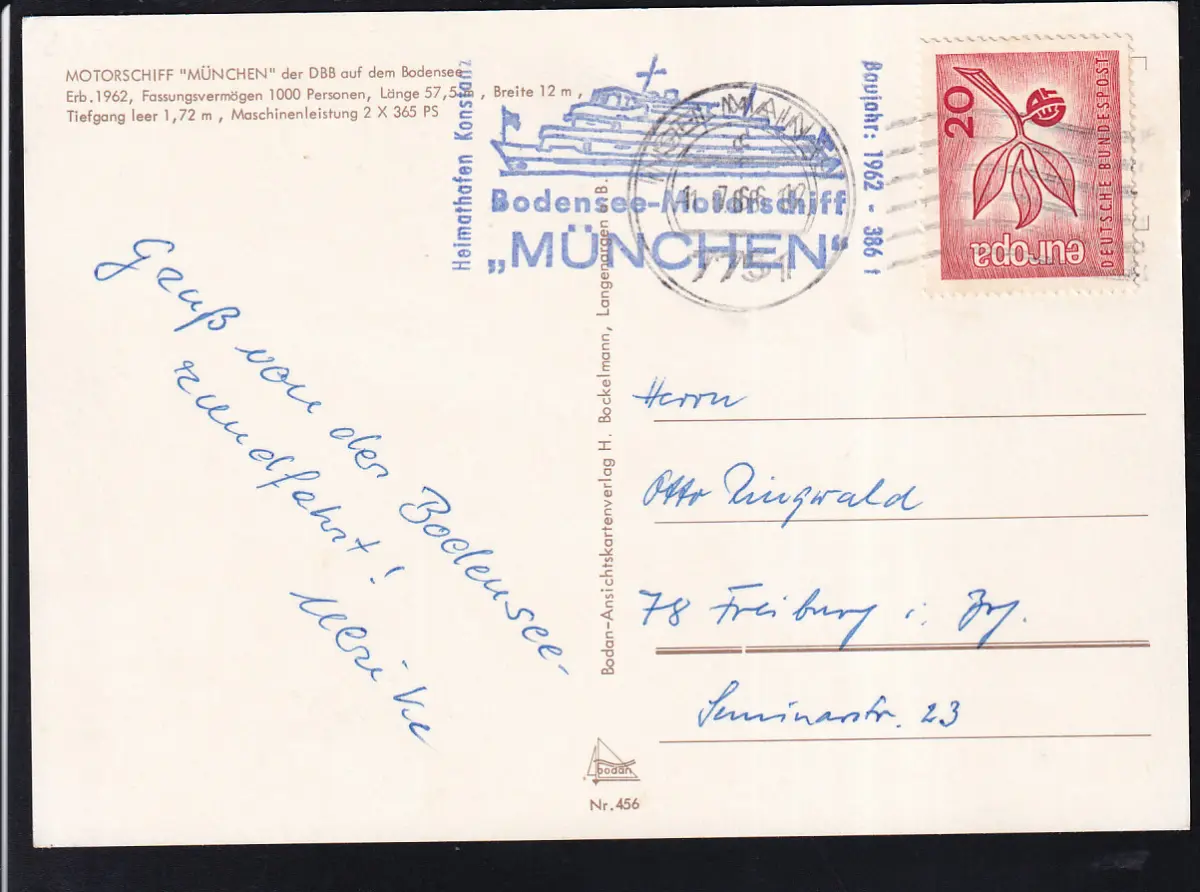 MOTORSCHIFF "MÜNCHEN" der DBB auf dem Bodensee
Erb.1962, Fassungsvermögen 1000 Personen, Länge 57,5 m , Breite 12 m ,
Tiefgang leer 1,72 m , Maschinenleistung 2 X 365 PS
Heimathafen Konstanz
Bodensee-Motorschiff
„MÜNCHEN"
Baujahr: 1962 - 386 t
INSEL MAINAU
7.66
7751
20
DEUTSCHE BUNDESPOST
europa
Gruß von der Bodensee-
rundfahrt!
Ulrike
Bodan-Ansichtskartenverlag H. Bockelmann, Langenargen a.B.
Herrn
Otto Ringwald
78 Freiburg i. Brg.
Seminarstr. 23
bodan
Nr.456